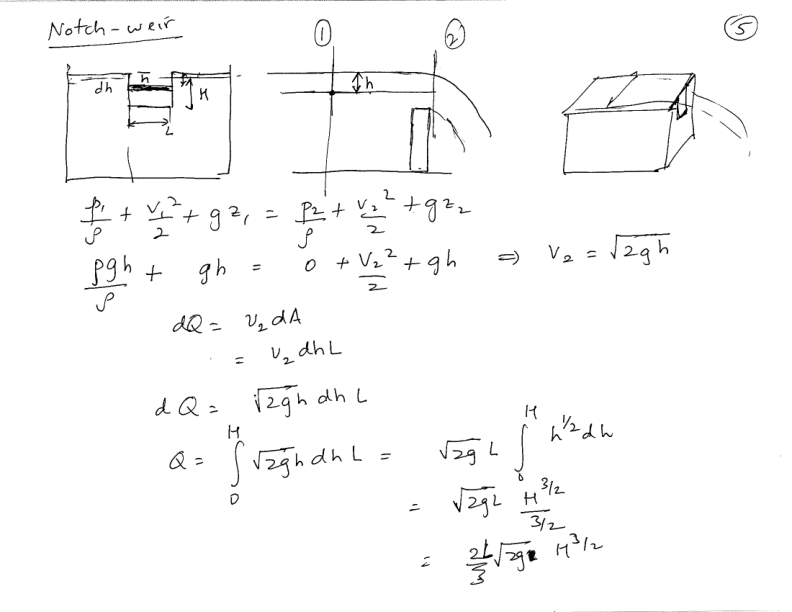 Notch-weir
① ② ⑤
dh h H h
L
p₁/ρ + v₁²/2 + gz₁ = p₂/ρ + v₂²/2 + gz₂
ρgh/ρ + gh = 0 + v₂²/2 + gh ⇒ v₂ = √2gh
dQ = v₂dA
= v₂dhL
dQ = √2gh dh L
Q = ∫₀ᴴ √2gh dh L = √2g L ∫₀ᴴ h^1/2 dh
= √2g L H^3/2 / 3/2
= 2L/3 √2g H^3/2